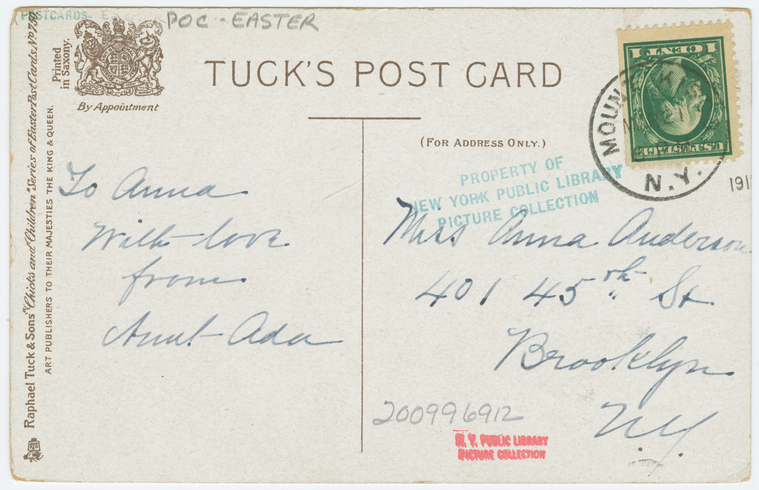 POSTCARDS- E
POC - EASTER
Printed
in Saxony.
By Appointment
TUCK'S POST CARD
(FOR ADDRESS ONLY.)
Raphael Tuck & Sons' "Chicks and Children" Series of Easter Post Cards. No
ART PUBLISHERS TO THEIR MAJESTIES THE KING & QUEEN.
To Anna
With love
from
Aunt Ada
PROPERTY OF
NEW YORK PUBLIC LIBRARY
PICTURE COLLECTION
MOUN
N.Y.
191
1 CENT 1
U.S. POSTAGE
Miss Anna Anderson
401 45th St
Brooklyn
N.Y.
200996912
N. Y. PUBLIC LIBRARY
PICTURE COLLECTION